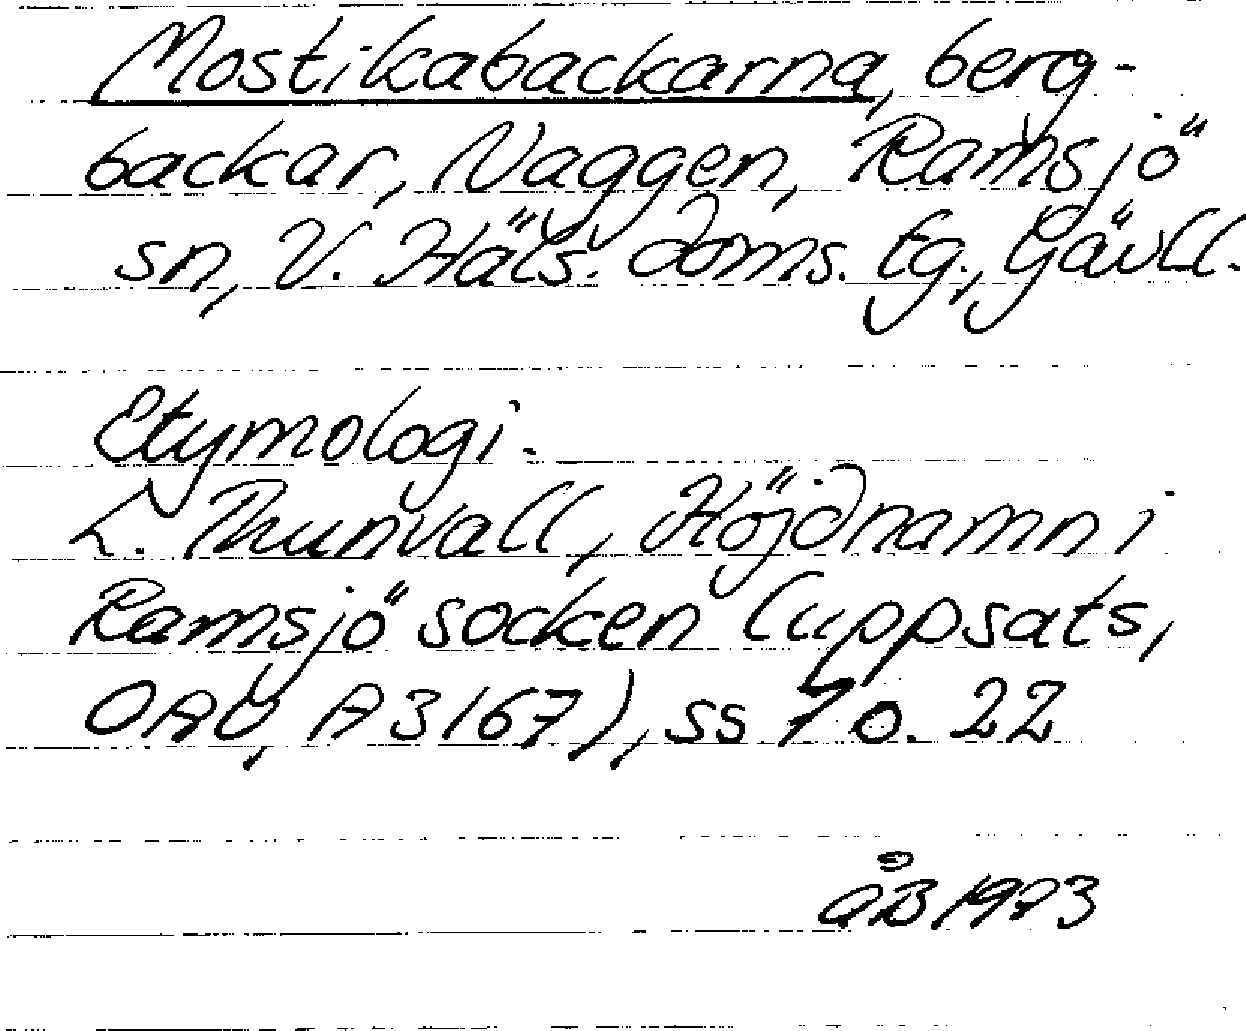 Mostikabackarna, berg-
backar, Naggen, Ramsjö
sn, V. Häls. doms. tg., Gävll.
Etymologi.
L. Thunvall, Höjdnamn i
Ramsjö socken (uppsats,
OAU, A3167), ss 7 o. 22
ÅB 1973